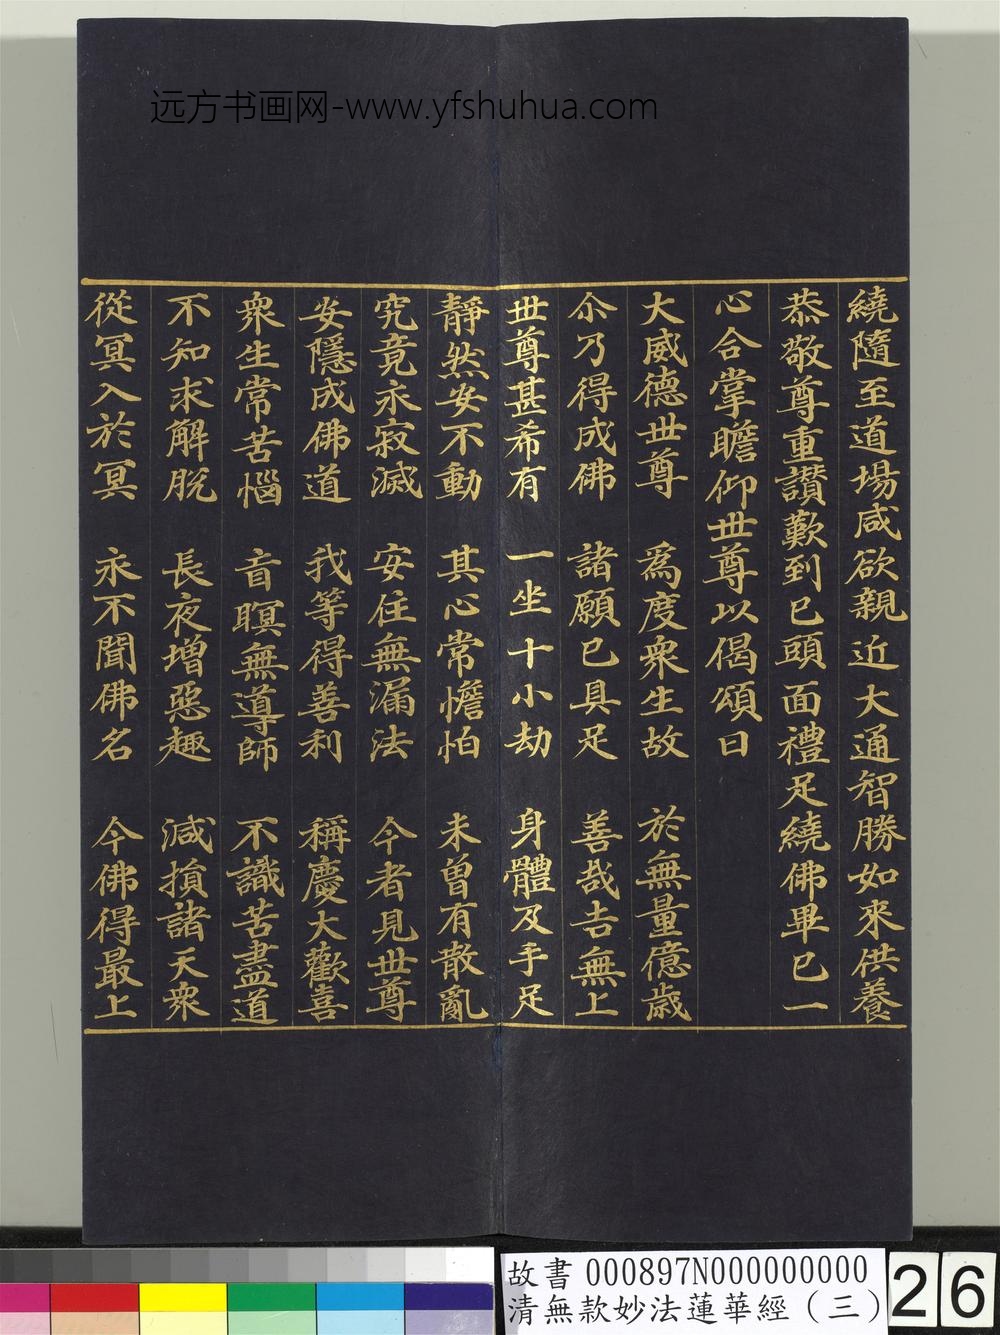 远方书画网-www.yfshuhua.com
繞隨至道場咸欲親近大通智勝如來供養
恭敬尊重讚歎到已頭面禮足繞佛畢已一
心合掌瞻仰世尊以偈頌曰
大威德世尊 為度眾生故 於無量億歲
尒乃得成佛 諸願已具足 善哉吉無上
世尊甚希有 一坐十小劫 身體及手足
靜然安不動 其心常憺怕 未曾有散亂
究竟永寂滅 安住無漏法 今者見世尊
安隱成佛道 我等得善利 稱慶大歡喜
眾生常苦惱 盲瞑無導師 不識苦盡道
不知求解脫 長夜增惡趣 減損諸天眾
從冥入於冥 永不聞佛名 今佛得最上
故書 000897N000000000
清無款妙法蓮華經（三）
26